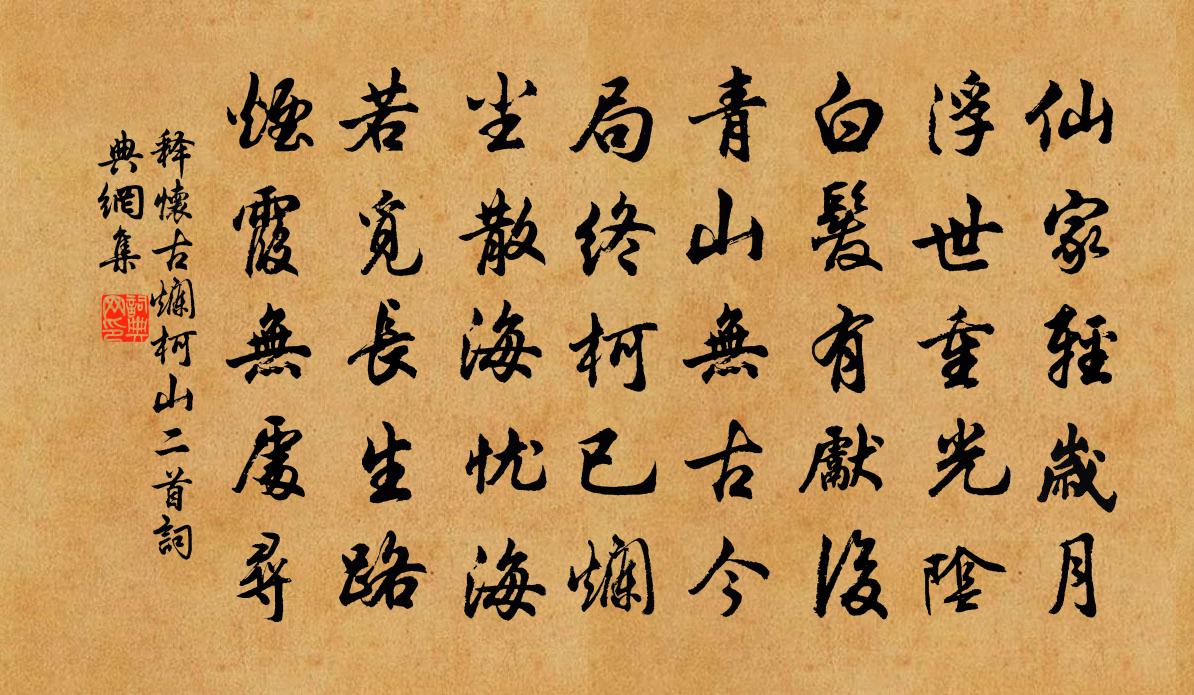 仙家輕歲月
浮世重光陰
白髮有獻後
青山無古今
局終柯已爛
尘散海忧海
若覓長生路
煙霞無處尋
释懷古爛柯山二首詞
典網集
詞典
网印